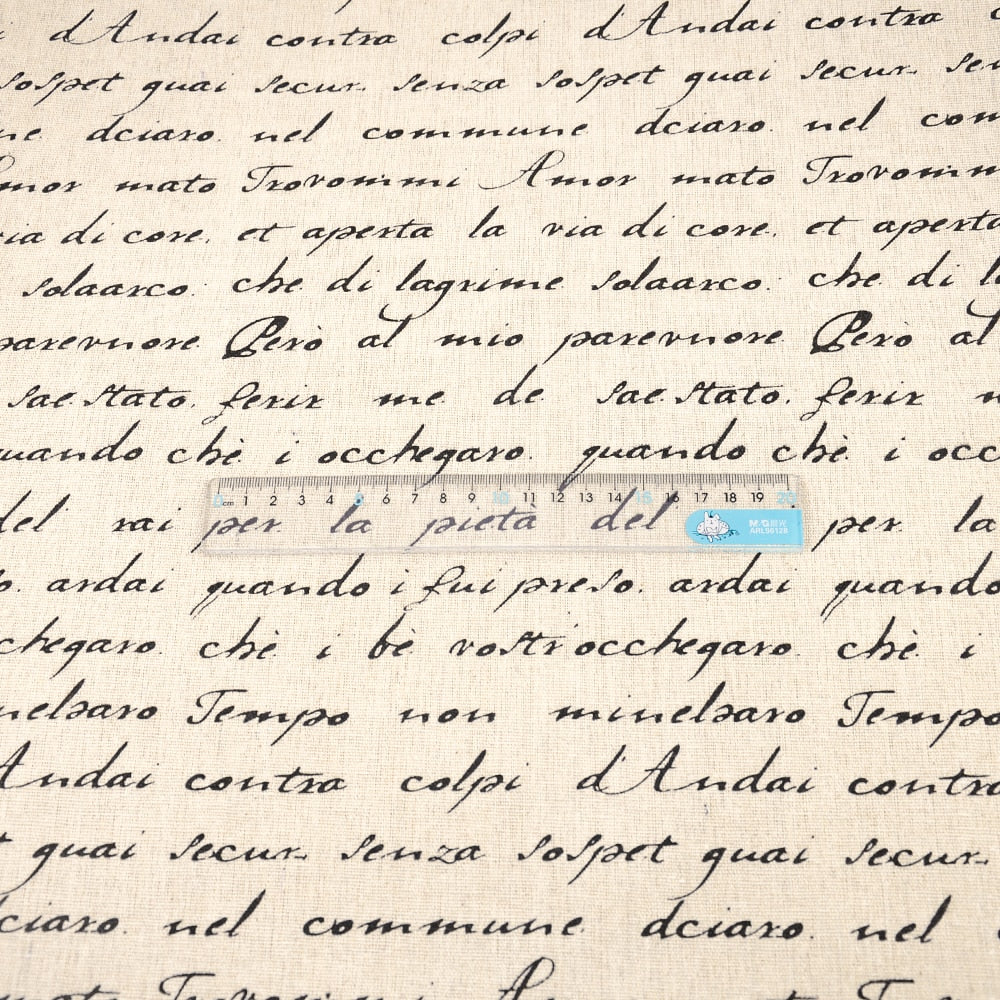 d'Andai contra colpi d'Andai contra
sospet guai secur. senza sospet guai secur.
dciaro. nel commune dciaro. nel
mato Trovommi Amor mato
di core. et aperta la via di core. et
solaarco. che di lagrime solaarco. che di
Però al mio parevnore. Però al
sae.Stato. ferir me de sae.Stato. ferir
chè i occhegaro. quando chè i
0 cm 1 2 3 4 5 6 7 8 9 10 11 12 13 14 15 16 17 18 19 20
del rai per la pietà del per la
M&G晨光
ARL96128
ardai quando i fui preso. ardai quando
chè i bè vostri occhegaro. chè i
Tempo non minelsaro Tempo
Andai contra colpi d'Andai
guai secur. senza sospet guai secur.
nel commune dciaro. nel